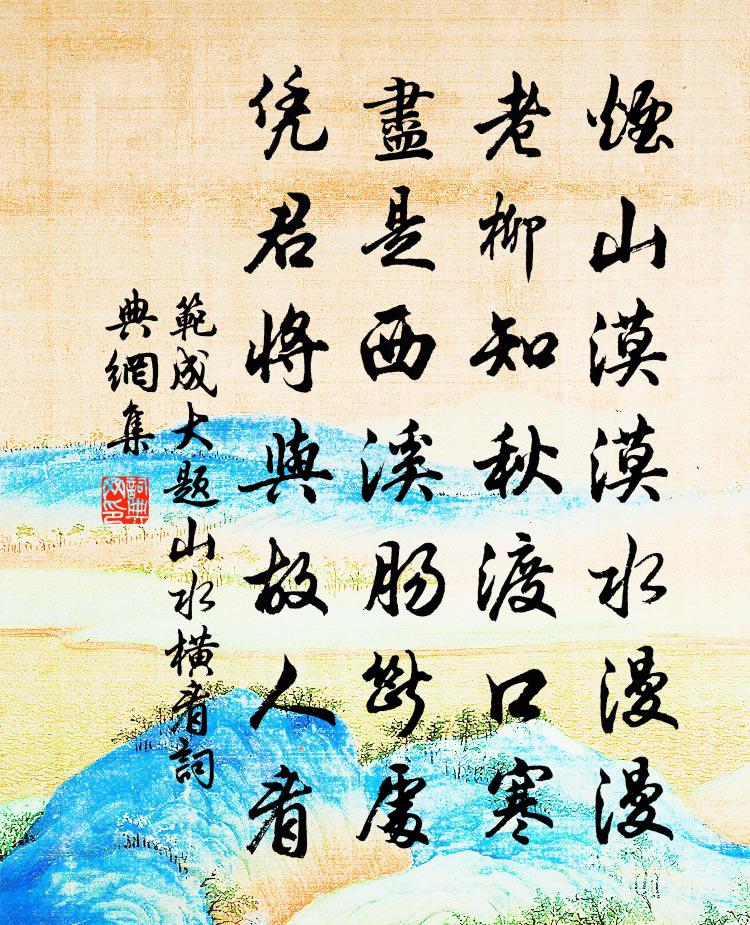 煙山漠漠水漫漫
老柳知秋渡口寒
盡是西溪腸斷處
凭君將與故人看
範成大題山水横看詞
典網集